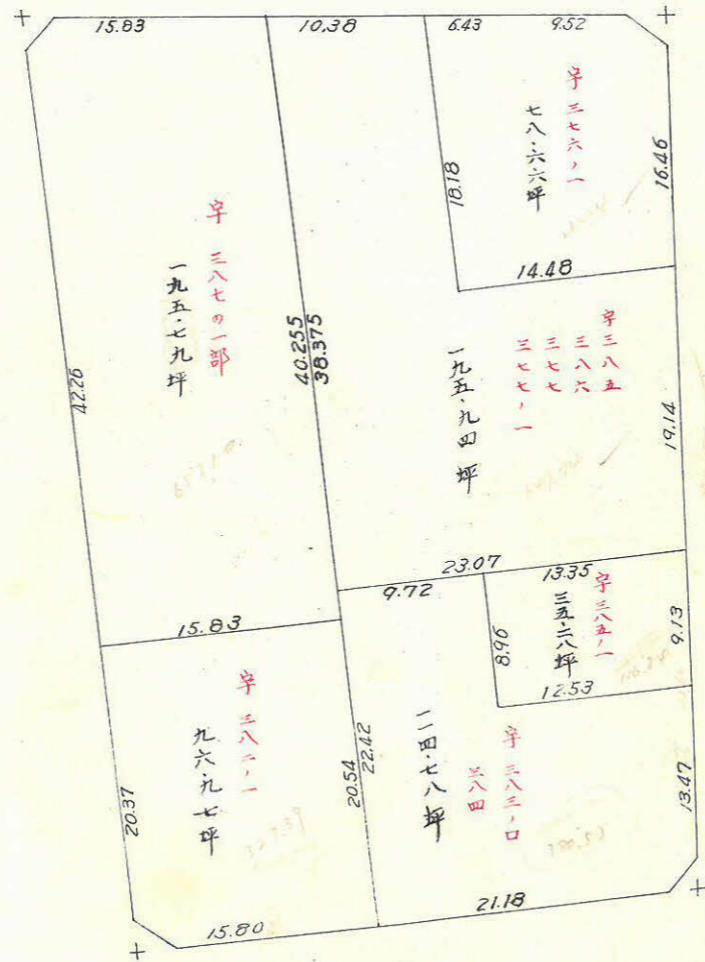 15.83
10.38
6.43
9.52
字 三七六ノ一
七八・六六坪
18.18
16.46
14.48
字 三八七の一部
一九五・七九坪
42.26
40.255
38.375
字三八五
三八六
三七七
三七七ノ一
一九五・九四坪
19.14
23.07
9.72
13.35
字三八五ノ一
三五・二八坪
8.96
9.13
12.53
15.83
字 三八二ノ一
九六・九七坪
20.37
20.54
22.42
字 三八三ノロ
三八四
一一四・七八坪
13.47
21.18
15.80